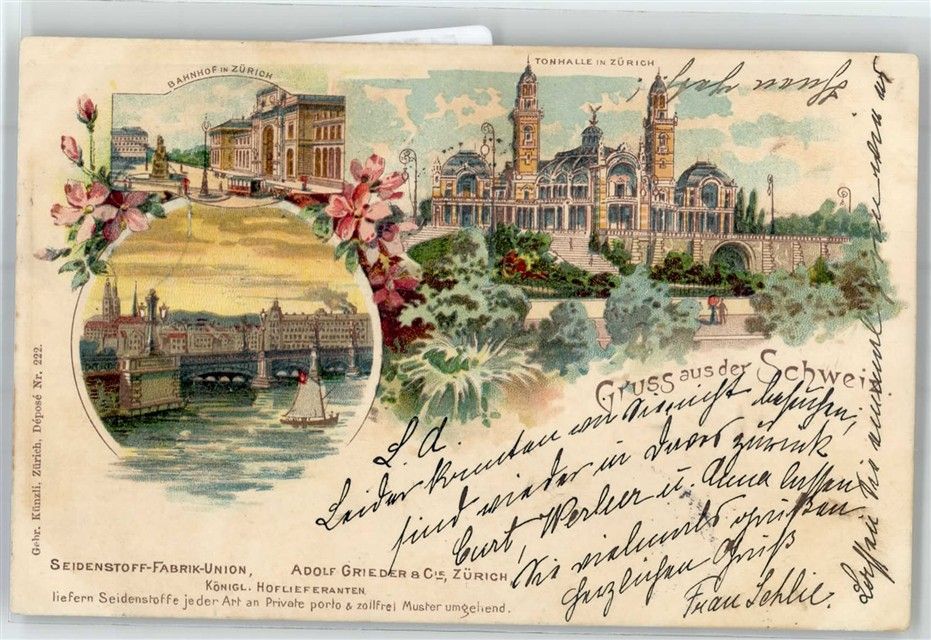 BAHNHOF IN ZÜRICH
TONHALLE IN ZÜRICH
Gruss aus der Schweiz
L. A.
Leider konnten wir Sie nicht besuchen,
sind wieder in Davos zurück
Curt, Werner u. Anna lassen
Sie vielmals grüßen
herzlichen Gruß
Frau Schlie.
Lassen Sie einmal
Gebr. Künzli, Zürich, Déposé Nr. 222.
SEIDENSTOFF-FABRIK-UNION, ADOLF GRIEDER & CIE, ZÜRICH
KÖNIGL. HOFLIEFERANTEN
liefern Seidenstoffe jeder Art an Private porto & zollfrei Muster umgehend.